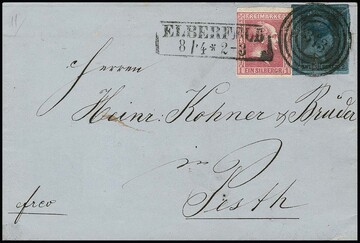 ELBERFELD
8/4*2-3
FREIMARKE
EIN SILBERGR.
Herren
Heinr: Kohner & Brüder
in
Pesth
frco